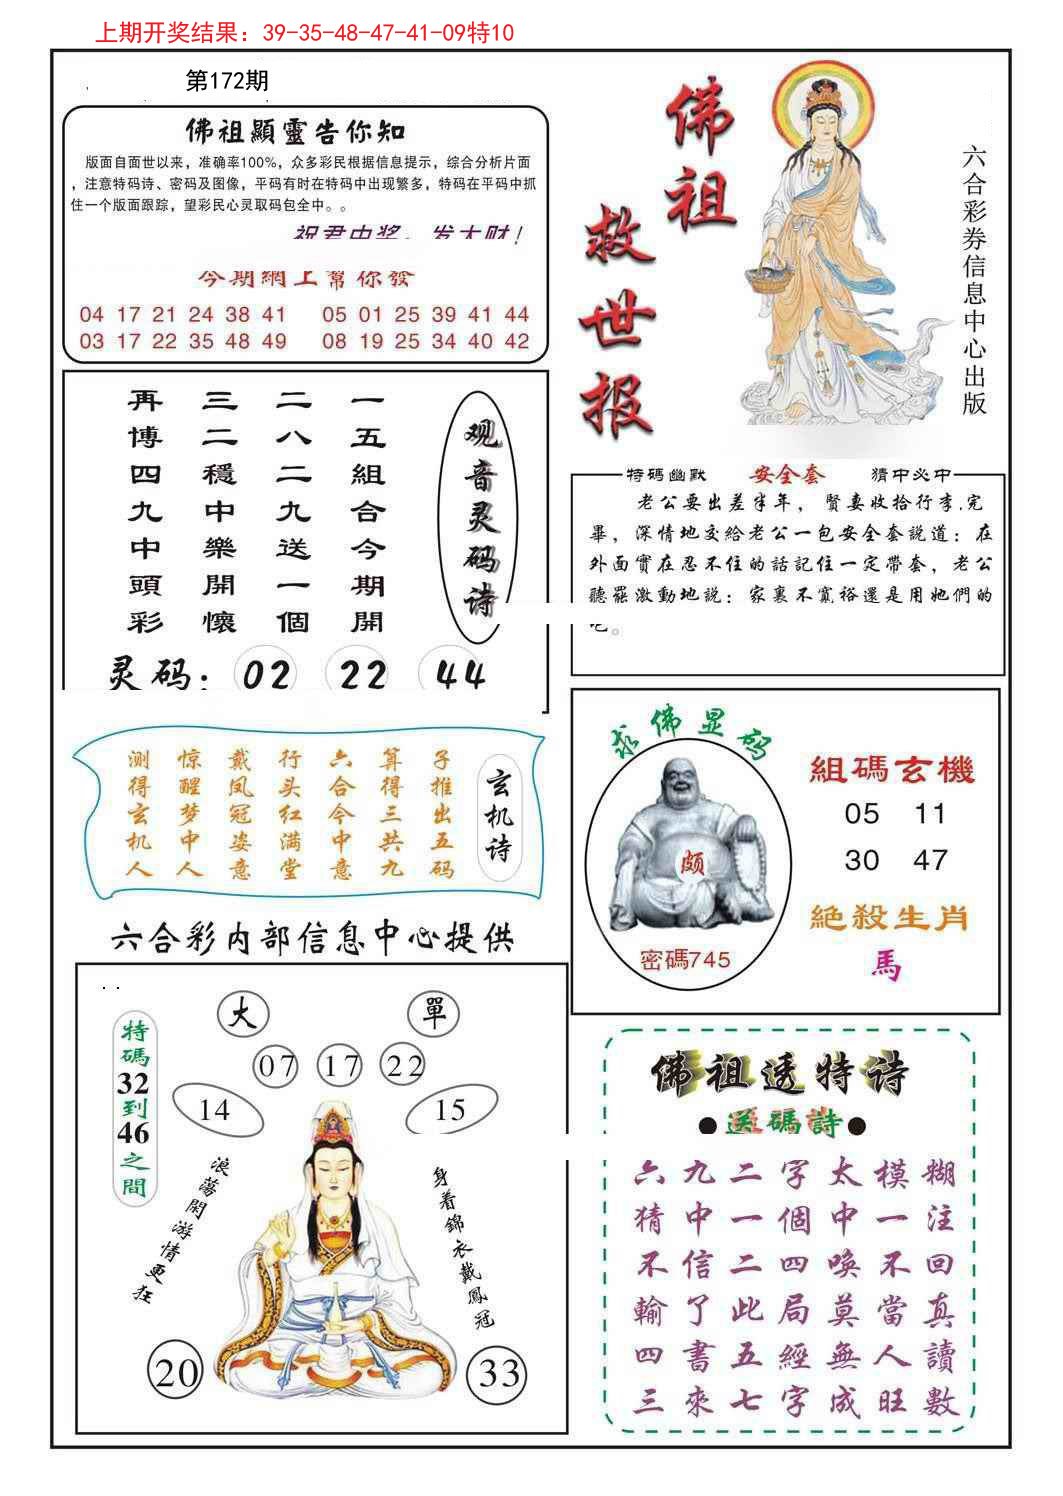 上期开奖结果：39-35-48-47-41-09特10
第172期
佛祖顯靈告你知
版面自面世以来，准确率100%，众多彩民根据信息提示，综合分析片面
，注意特码诗、密码及图像，平码有时在特码中出现繁多，特码在平码中抓
住一个版面跟踪，望彩民心灵取码包全中。。
祝君中奖，发大财！
今期網上幫你發
04 17 21 24 38 41 05 01 25 39 41 44
03 17 22 35 48 49 08 19 25 34 40 42
佛祖
救世报
六合彩券信息中心出版
观音灵码诗
一五組合今期開
二八二九送一個
三二穩中樂開懷
再博四九中頭彩
灵码：02 22 44
特碼幽默 安全套 猜中必中
老公要出差半年，賢妻收拾行李.完
畢，深情地交給老公一包安全套説道：在
外面實在忍不住的話記住一定帶套，老公
聽罷激動地説：家裏不寬裕還是用她們的
吧。
玄机诗
子推出五码
算得三共九
六合今中意
行头红满堂
戴凤冠姿意
惊醒梦中人
测得玄机人
求佛显码
颇
密碼745
組碼玄機
05 11
30 47
絕殺生肖
馬
六合彩内部信息中心提供
大 單
07 17 22
14 15
特碼32到46之間
浪蕩閑游情更狂
身着錦衣戴鳳冠
20 33
佛祖透特诗
●送碼詩●
六九二字太模糊
猜中一個中一注
不信二四喚不回
輸了此局莫當真
四書五經無人讀
三來七字成旺數